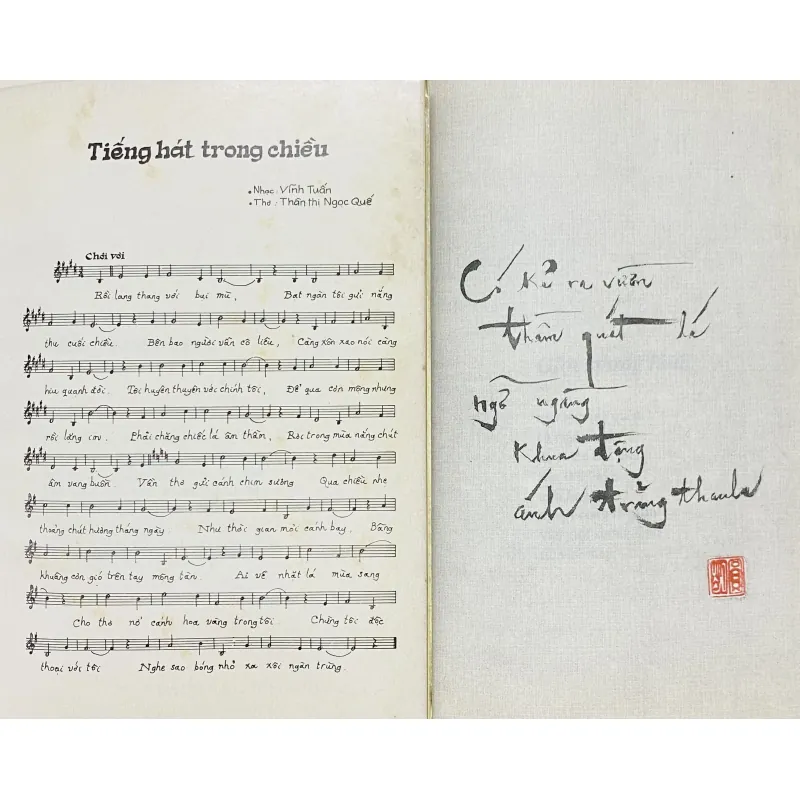 Tiếng hát trong chiều
• Nhạc : Vĩnh Tuấn
• Thơ : Thân thị Ngọc Quế
Chơi vơi
Rồi lang thang với bụi mù, Bạt ngàn tôi gửi nắng
thu cuối chiều. Bên bao người vẫn cô liêu, Càng xôn xao nói càng
hiu quạnh đời. Tôi huyên thuyên với chính tôi, Để qua cơn mộng nhưng
rồi lắng im. Phải chăng chiếc lá âm thầm, Rơi trong mùa nắng chút
âm vang buồn. Vần thơ gửi cánh chim sương Qua chiều nhẹ
thoảng chút hương tháng ngày. Như thời gian mỏi cánh bay, Bâng
khuâng cơn gió trên tay mộng tàn. Ai về nhặt lá mùa sang
Cho thơ nở cánh hoa vàng trong tôi. Chừng tôi độc
thoại với tôi Nghe sao bóng nhỏ xa xôi ngàn trùng.
Có kẻ ra vườn
thầm quét lá
ngỡ ngàng
khua động
ánh trăng